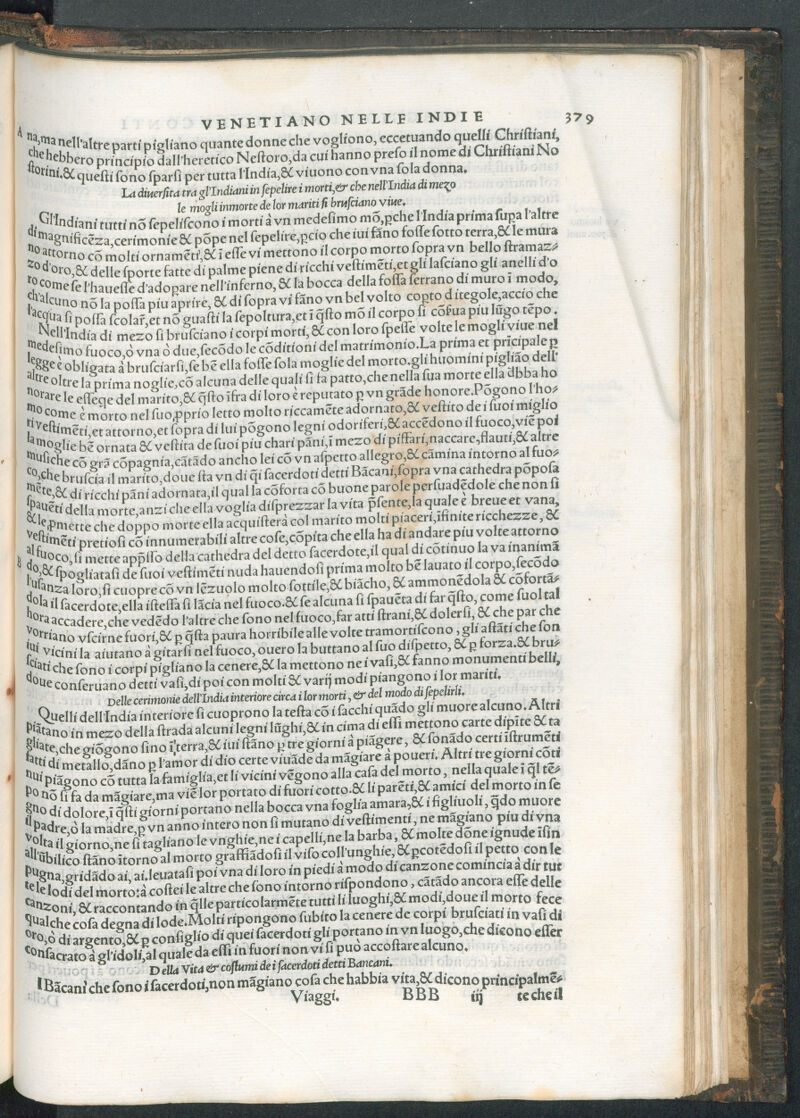 VENETIANO NELLE INDIE 379
A na,ma nell'altre parti pigliano quante donne che vogliono, eccetuando quelli Chriſtiani,
che hebbero principio dall'heretico Neſtoro,da cui hanno preſo il nome di Chriſtiani No
ſtorini.& queſti ſono ſparſi per tutta l'India,& viuono con vna ſola donna.
La diuerſita tra gl'Indiani in ſepelire i morti,& che nell'India di mezo
le mogli inmorte de lor mariti ſi bruſciano viue.
Gl'Indiani tutti nõ ſepeliſcono i morti à vn medeſimo mõ,ꝑche l'India prima ſuꝑa l'altre
di magnificẽza,cerimonie & põpe nel ſepelire,ꝑcio che iui fãno foſſe ſotto terra,& le mura
no attorno cõ molti ornamẽti,& ĩ eſſe vi mettono il corpo morto ſopra vn bello ſtramaz⸗
zo d'oro,& delle ſporte fatte di palme piene di ricchi veſtimẽti,et gli laſciano gli anelli d'o
ro come ſe l'haueſſe d'adopare nell'inferno, & la bocca della foſſa ſerrano di muro ĩ modo,
ch'alcuno nõ la poſſa piu aprire, & di ſopra vi fãno vn bel volto coꝑto di tegole,accio che
l'acqua ſi poſſa ſcolar,et nõ guaſti la ſepoltura,et ĩ q̃ſto mõ il corpo ſi cõſerua piu lũgo tẽpo.
Nell'India di mezo ſi bruſciano i corpi morti, & con loro ſpeſſe volte le mogli viue nel
medeſimo fuoco,ò vna ò due,ſecõdo le cõditioni del matrimonio.La prima et prĩcipale ꝑ
legge è obligata à bruſciarſi,ſe bẽ ella foſſe ſola moglie del morto.gli huomini piglião dell'
altre oltre la prima noglie,cõ alcuna delle quali ſi fa patto,che nella ſua morte ella dbba ho
norare le eſſeqe del marito,& q̃ſto ĩfra di loro è reputato ꝑ vn grãde honore.Põgono l'ho⸗
mo come è morto nel ſuo,ꝓprio letto molto riccamẽte adornato,& veſtito de i ſuoi miglio
ri veſtimẽti,et attorno,et ſopra di lui põgono legni odoriferi,& accẽdono il fuoco,viẽ poi
la moglie bẽ ornata & veſtita de ſuoi piu chari pãni,ĩ mezo di piffari,naccare,flauti,& altre
muſiche cõ grã cõpagnia,cãtãdo ancho lei cõ vn aſpetto allegro,& camina intorno al fuo⸗
co,che bruſcia il marito,doue ſta vn di q̃i ſacerdoti detti Bãcani,ſopra vna cathedra põpoſa
mẽte,& di ricchi pãni adornata,il qual la cõforta cõ buone parole perſuadẽdole che non ſi
ſpauẽti della morte,anzi che ella voglia diſprezzar la vita p̃ſente,la quale è breue et vana,
& le ꝓmette che doppo morte ella acquiſterà col marito molti piaceri,ĩfinite ricchezze, &
veſtimẽti pretioſi cõ innumerabili altre coſe,cõpita che ella ha di andare piu volte attorno
al fuoco,ſi mette app̃ſſo della cathedra del detto ſacerdote,il qual di cõtinuo la va inanimã
B do,& ſpogliataſi de ſuoi veſtimẽti nuda hauendoſi prima molto bẽ lauato il corpo,ſecõdo
l'uſanza loro,ſi cuopre cõ vn lẽzuolo molto ſottile,& biãcho, & ammonẽdola & cõfortã⸗
dola il ſacerdote,ella iſteſſa ſi lãcia nel fuoco.& ſe alcuna ſi ſpauẽta di far q̃ſto, come ſuol tal
hora accadere,che vedẽdo l'altre che ſono nel fuoco,far atti ſtrani,& dolerſi, & che par che
vorriano vſcirne fuori,& ꝑ q̃ſta paura horribile alle volte tramortiſcono, gli aſtãti che ſon
iui vicini la aiutano à gitarſi nel fuoco,ouero la buttano al ſuo diſpetto, & ꝑ forza.& bru⸗
ſciati che ſono i corpi pigliano la cenere,& la mettono ne i vaſi,& fanno monumenti belli,
doue conſeruano detti vaſi,di poi con molti & varij modi piangono i lor mariti.
Delle cerimonie dell'India interiore circa i lor morti, & del modo di ſepelirli.
Quelli dell'India interiore ſi cuoprono la teſta cõ i ſacchi quãdo gli muore alcuno. Altri
piãtano in mezo della ſtrada alcuni legni lũghi,& in cima di eſſi mettono carte dipĩte & ta
gliate,che giõgono ſino ĩ terra,& iui ſtãno ꝑ tre giorni à piãgere, & ſonãdo certi ĩſtrumẽti
fatti di metallo,dãno ꝑ l'amor di dio certe viuãde da mãgiare à poueri. Altri tre giorni cõti
nui piãgono cõ tutta la famiglia,et li vicini vẽgono alla caſa del morto, nella quale ĩ q̃l tẽ⸗
po nõ ſi fa da mãgiare,ma viẽ lor portato di fuori cotto.& li parẽti,& amici del morto in ſe
gno di dolore,ĩ q̃ſti giorni portano nella bocca vna foglia amara,& i figliuoli, q̃do muore
il padre,ò la madre,ꝑ vn anno intero non ſi mutano di veſtimenti, ne mãgiano piu di vna
volta il giorno,ne ſi tagliano le vnghie,ne i capelli,ne la barba, & molte dõne ignude ĩſin
all'ũbilico ſtãno ĩtorno al morto graffiãdoſi il viſo coll'unghie,& ꝑcotẽdoſi il petto con le
pugna,gridãdo ai, ai.leuataſi poi vna di loro in piedi à modo di canzone comincia à dir tut
te le lodi del morto:à coſtei le altre che ſono intorno riſpondono, cãtãdo ancora eſſe delle
canzoni, & raccontando in q̃lle particolarmẽte tutti li luoghi,& modi,doue il morto fece
qual che coſa degna di lode.Molti ripongono ſubito la cenere de corpi bruſciati in vaſi di
oro,ò di argento,& ꝑ conſiglio di quei ſacerdoti gli portano in vn luogo,che dicono eſſer
conſacrato à gl'idoli,al quale da eſſi in fuori non vi ſi può accoſtare alcuno.
Della Vita & coſtumi de i ſacerdoti detti Bancani.
I Bãcani che ſono i ſacerdoti,non mãgiano coſa che habbia vita,& dicono principalmẽ⸗
Viaggi. BBB iij te che il